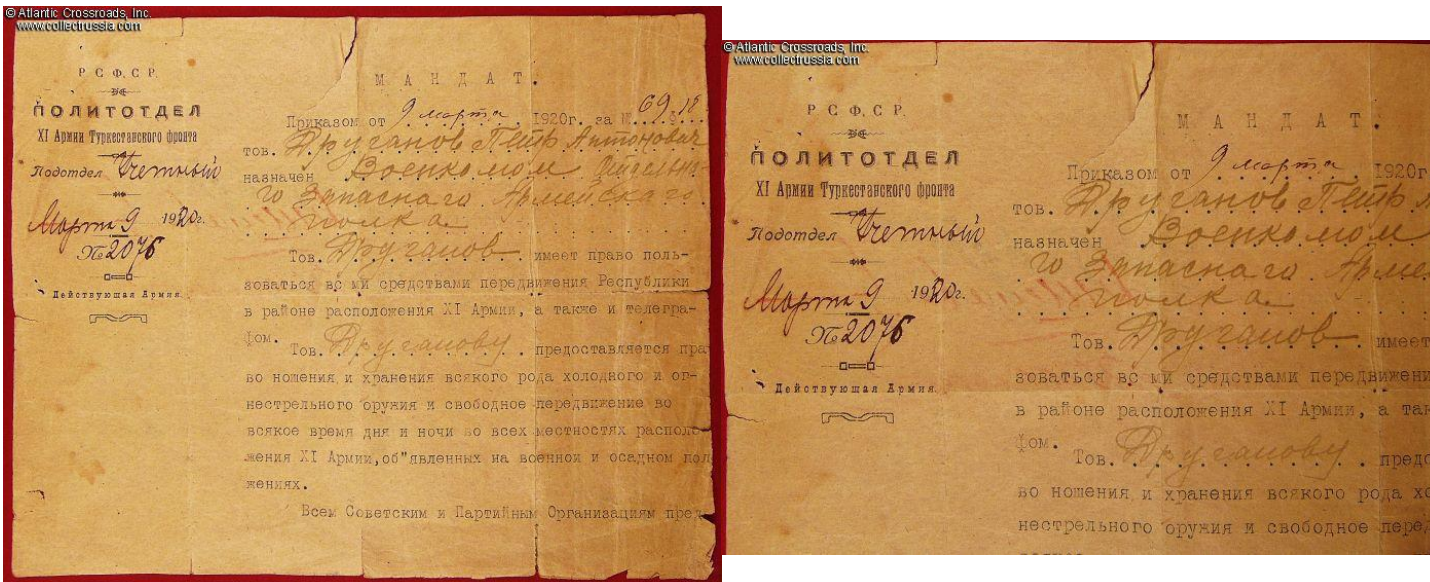 © Atlantic Crossroads, Inc.
www.collectrussia.com
Р С Ф. С Р.
ПОЛИТОТДЕЛ
XI Армии Туркестанского фронта
Подотдел Учетный
Марта 9 1920г.
№ 2076
Действующая Армия.
МАНДАТ.
Приказом от 9 марта 1920г. за №
тов. Друганов Петр Антонович
назначен Военкомом
го Запаснаго Армейскаго
полка
Тов. Друганов имеет право поль-
зоваться вс ми средствами передвижения Республики
в районе расположения XI Армии, а также и телегра-
фом.
Тов. Друганову предоставляется пра
во ношения и хранения всякого рода холодного и ог-
нестрельного оружия и свободное передвижение во
всякое время дня и ночи во всех местностях располо-
жения XI Армии, об"явленных на военной и осадном пол
жениях.
Всем Советским и Партийным Организациям пред
© Atlantic Crossroads, Inc.
www.collectrussia.com
Р С Ф. С Р.
ПОЛИТОТДЕЛ
XI Армии Туркестанского фронта
Подотдел Учетный
Марта 9 1920г.
№ 2076
Действующая Армия.
МАНДАТ.
Приказом от 9 марта 1920г
тов. Друганов Петр
назначен Военкомом
го Запаснаго Армей
полка
Тов. Друганов имеет
зоваться вс ми средствами передвижени
в районе расположения XI Армии, а так
фом.
Тов. Друганову предо
во ношения и хранения всякого рода хо
нестрельного оружия и свободное перед